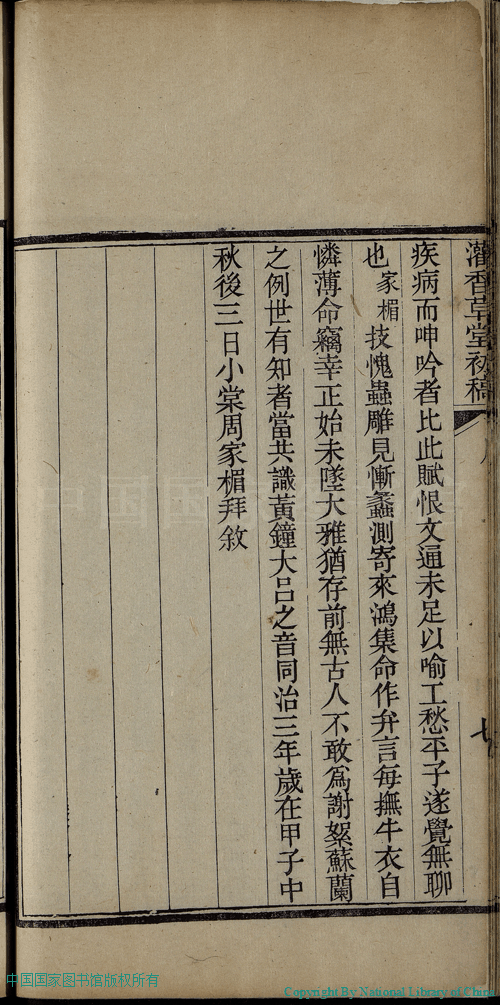 灌香草堂初稿
疾病而呻吟者比此賦恨文通未足以喻工愁平子遂覺無聊
也家楣技愧蟲雕見慚蠡測寄來鴻集命作弁言每撫牛衣自
憐薄命竊幸正始未墜大雅猶存前無古人不敢為謝絮蘇蘭
之例世有知者當共識黃鐘大呂之音同治三年歲在甲子中
秋後三日小棠周家楣拜敘
中国国家图书馆版权所有
Copyright By National Library of China